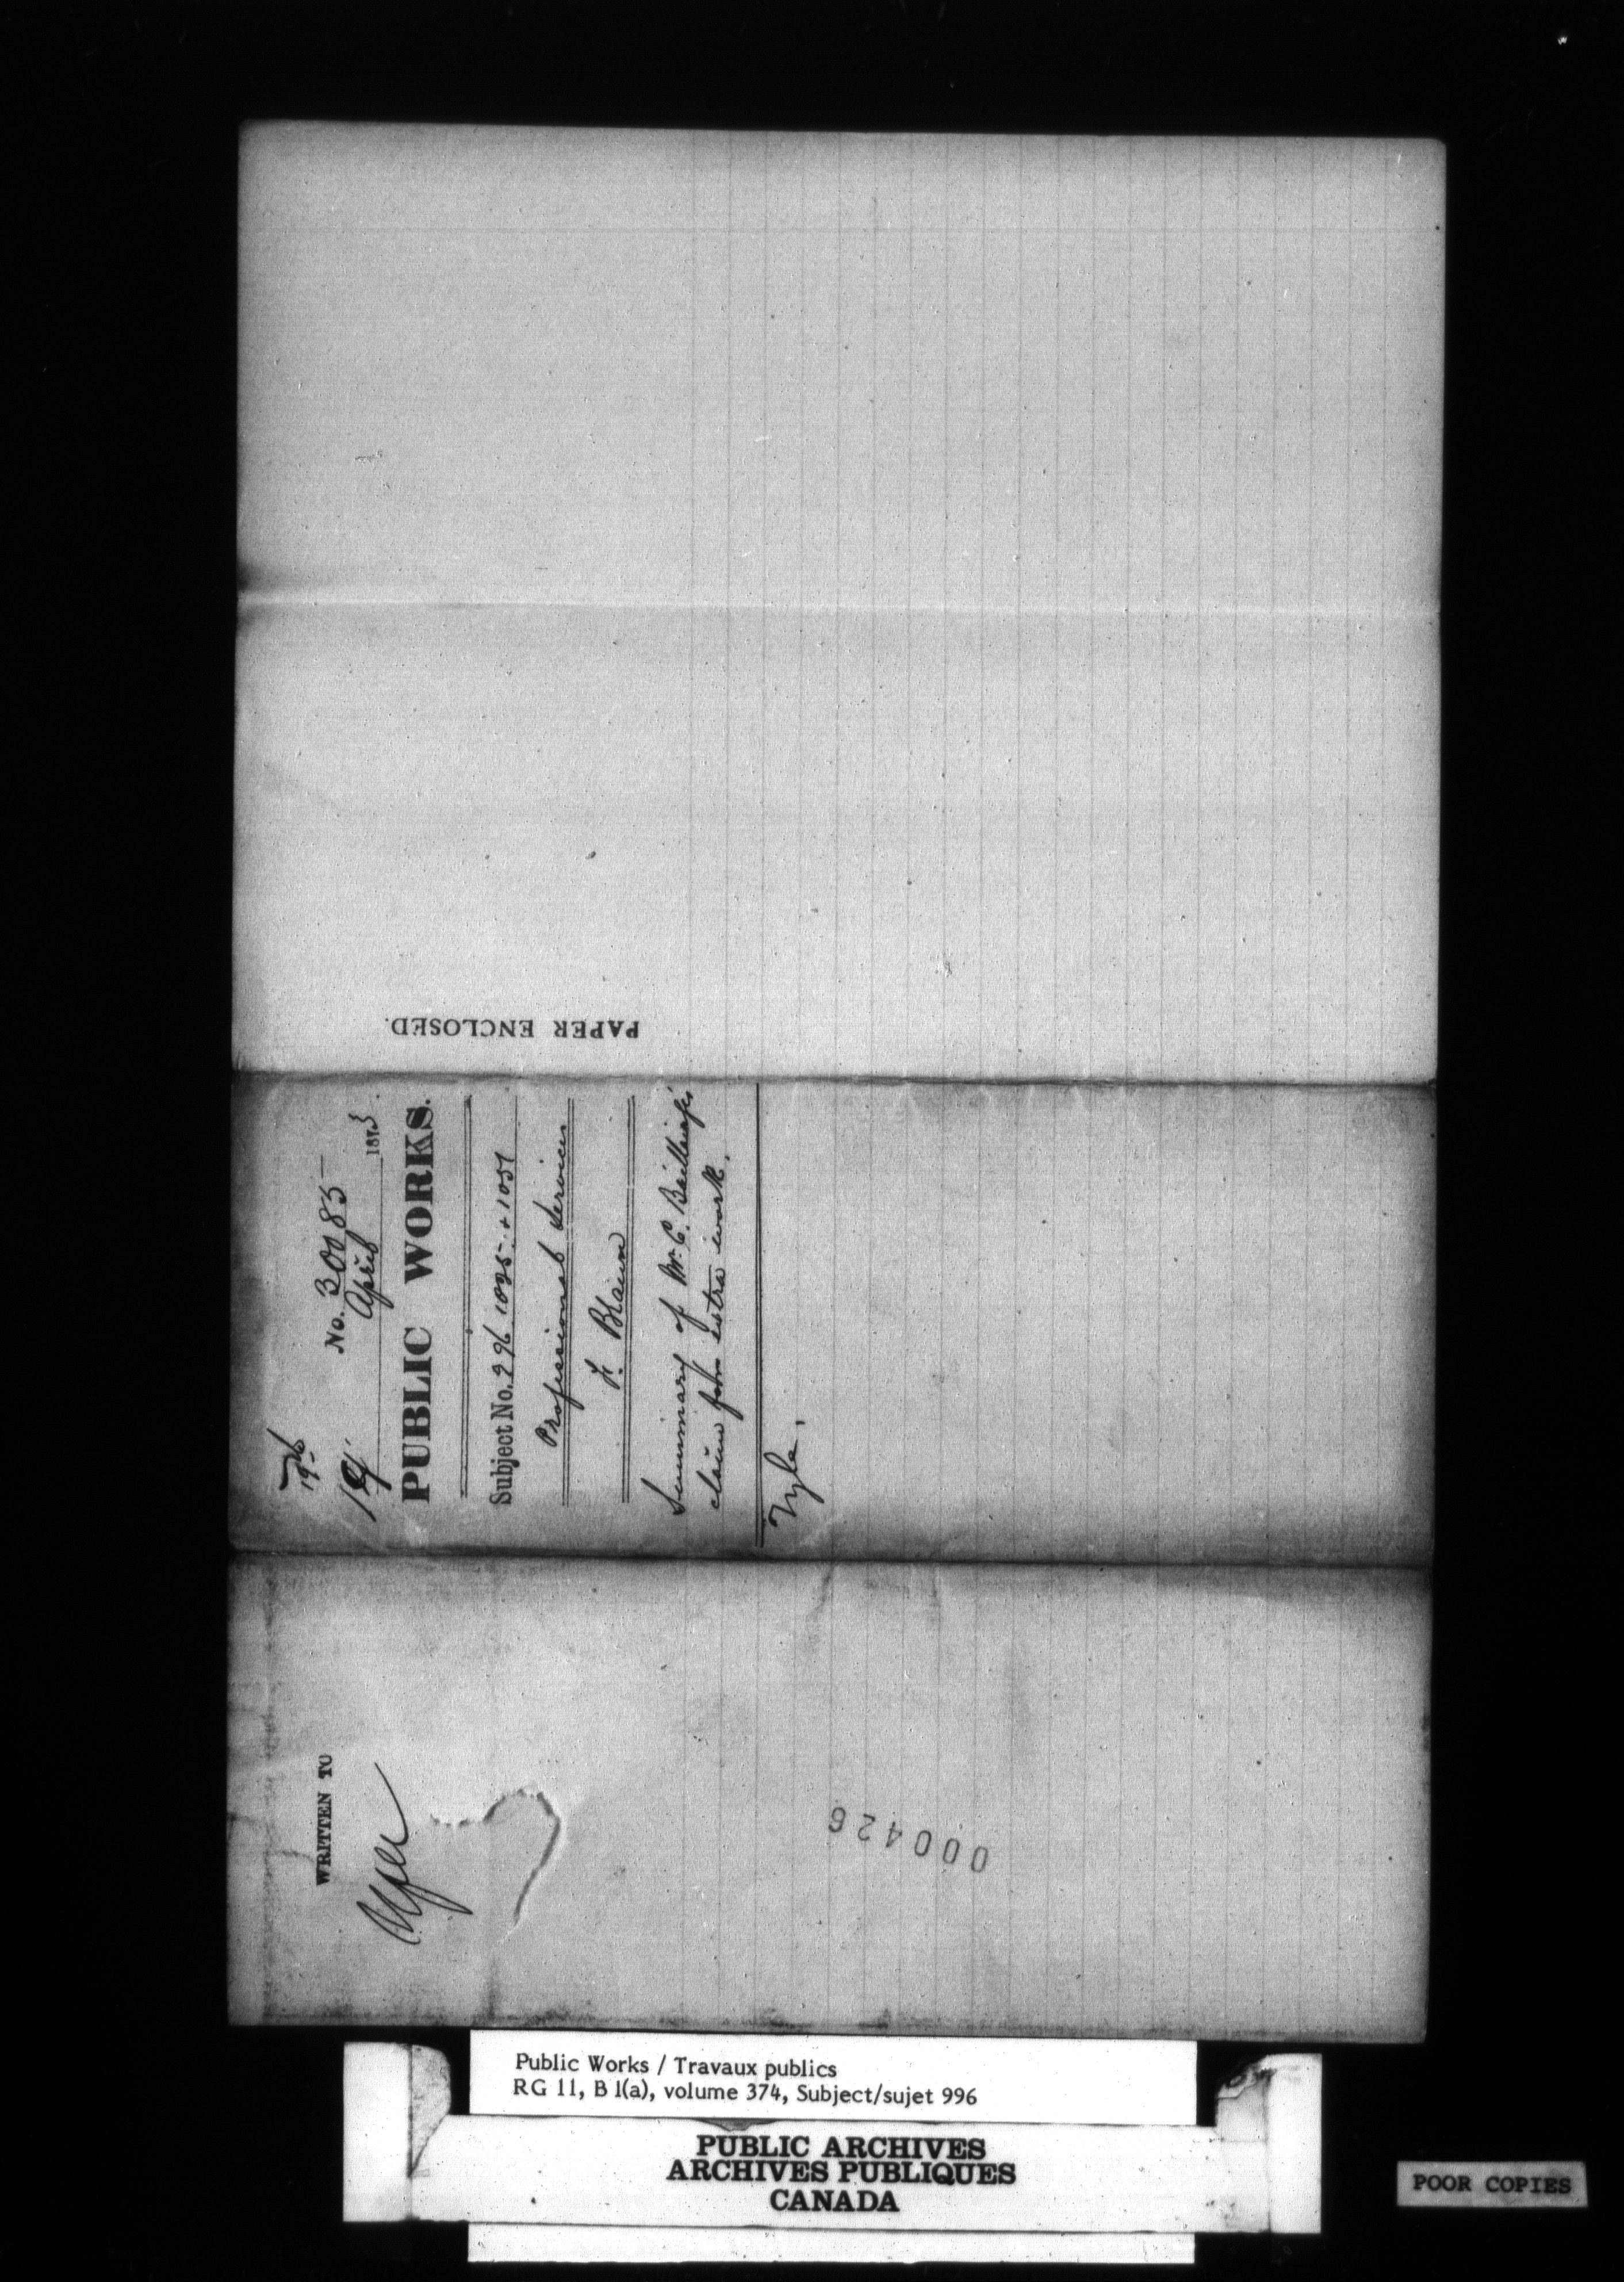 PAPER ENCLOSED.
19th
No. 30085
19 April 1873.
PUBLIC WORKS.
Subject No. 996 1025 + 1051
Professional Services
F. Blain
Summary of Mr C. Baillairgé's
claim for extra work.
Fyle.
WRITTEN TO
000426
Public Works / Travaux publics
RG 11, B 1(a), volume 374, Subject/sujet 996
PUBLIC ARCHIVES
ARCHIVES PUBLIQUES
CANADA
POOR COPIES